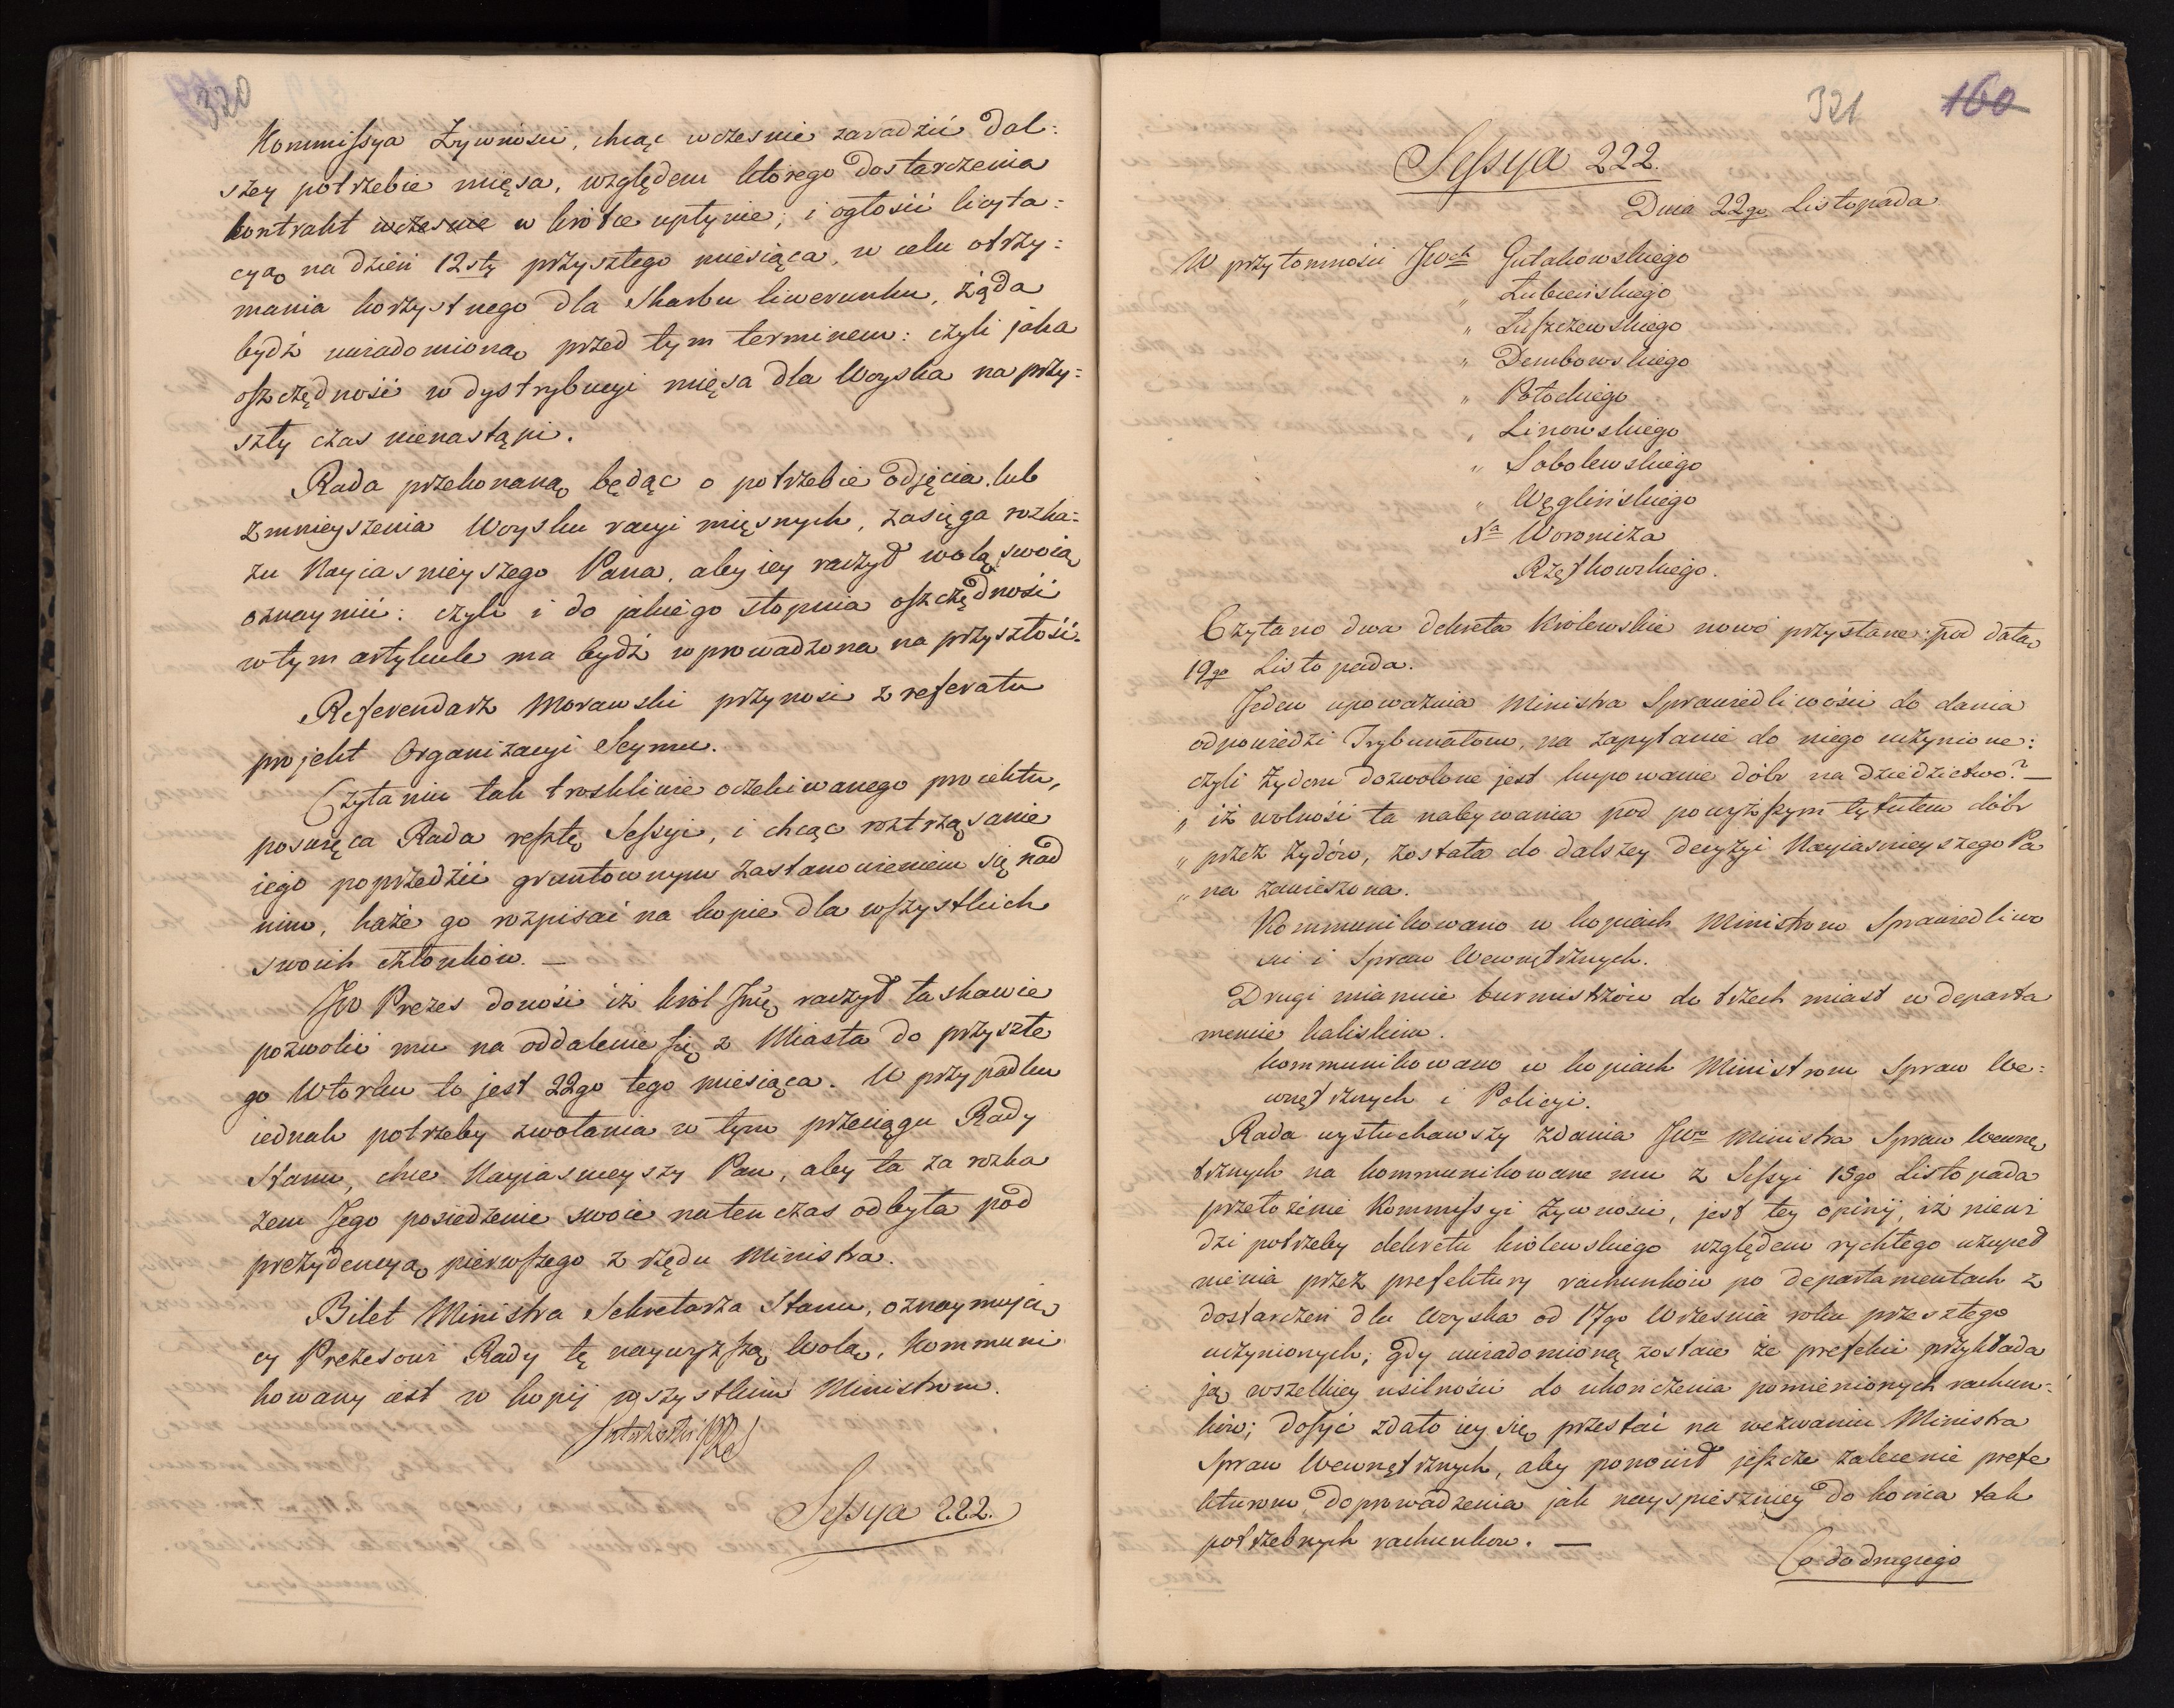 320
Kommissya Żywności, chcąc wcześnie zaradzić dal:
szey potrzebie mięsa, względem którego dostarczenia
kontrakt wcześnie w krótce upłynie; i ogłosić licyta:
cyą na dzień 12sty przyszłego miesiąca, w celu otrzy:
mania korzystnego dla Skarbu liwerunku, żąda
bydź uwiadomioną przed tym terminem: czyli jaka
oszczędność w dystrybucyi mięsa dla Woyska na przy:
szły czas nienastąpi.
Rada przekonaną będąc o potrzebie odjęcia, lub
zmnieyszenia Woysku racyi mięsnych, zasięga rozka:
zu Nayiasnieyszego Pana, aby iey raczył wolą swoią
oznaymić: czyli i do jakiego stopnia oszczędność
w tym artykule ma bydź wprowadzona na przyszłość.
Referendarz Morawski przynosi z referatu
projekt Organizacyi Seymu.
Czytaniu tak troskliwie oczekiwanego proiektu,
poswięca Rada resztę Sessyi, i chcąc roztrząsanie
iego poprzedzić gruntownym zastanowieniem się nad
nim, każe go rozpisać na kopie dla wszystkich
swoich członków. —
JW Prezes donosi iż król Jmć raczył łaskawie
pozwolić mu na oddalenie się z Miasta do przyszłe
go Wtorku to jest 22go tego miesiąca. W przypadku
iednak potrzeby zwołania w tym przeciągu Rady
Stanu, chce Nayiasnieyszy Pan, aby ta za rozka
zem Jego posiedzenie swoie naten czas odbyła pod
prezydencyą pierwszego z rzędu Ministra.
Bilet Ministra Sekretarza Stanu, oznaymuią
cy Prezesowi Rady tę naywyższą Wolą, kommuni
kowany iest w kopij wszystkim Ministrom.
Gutakowski
Sessya 222.
321
160
Sessya 222.
Dnia 22go Listopada
W przytomności JWch Gutakowskiego
" Łubieńskiego
" Łuszczewskiego
" Dembowskiego
" Potockiego
" Linowskiego
" Sobolewskiego
" Węglińskiego
Xa Woronicza
Rzętkowskiego.
Czytano dwa dekreta Królewskie nowo przysłane pod datą
19go Listopada.
Jeden upoważnia Ministra Sprawiedliwości do dania
odpowiedzi Trybunałom, na zapytanie do niego uczynione:
czyli Żydom dozwolone jest kupowanie dóbr na dziedzictwo? —
" iż wolność ta nabywania pod powyższym tytułem dóbr
" przez żydów, została do dalszey decyzyi Nayiasnieyszego Pa
" na zawieszona.
Kommunikowano w kopiach Ministrom Sprawiedliwo
ści i Spraw Wewnętrznych.
Drugi mianuie burmistrzów do trzech miast w departa
mencie kaliskim.
Kommunikowano w kopiach Ministrom Spraw We:
wnętrznych i Policyi.
Rada wysłuchawszy zdania JWo Ministra Spraw Wewnę
trznych na kommunikowane mu z Sessyi 18go Listopada
przełożenie Kommissyi Żywności, jest tey opinij, iż niewi
dzi potrzeby dekretu królewskiego względem rychłego uzupeł
nienia przez prefektury rachunków po departamentach z
dostarczeń dla Woyska od 17go Września roku przeszłego
uczynionych; gdy uwiadomioną zostaie że prefekci przykłada
ją wszelkiey usilności do ukończenia pomienionych rachun-
ków; dosyć zdało iey się przestać na wezwaniu Ministra
Spraw Wewnętrznych, aby ponowił jeszcze zalecenie prefe
kturom, doprowadzenia jak nayspieszniey do końca tak
potrzebnych rachunkow. —
Co do drugiego